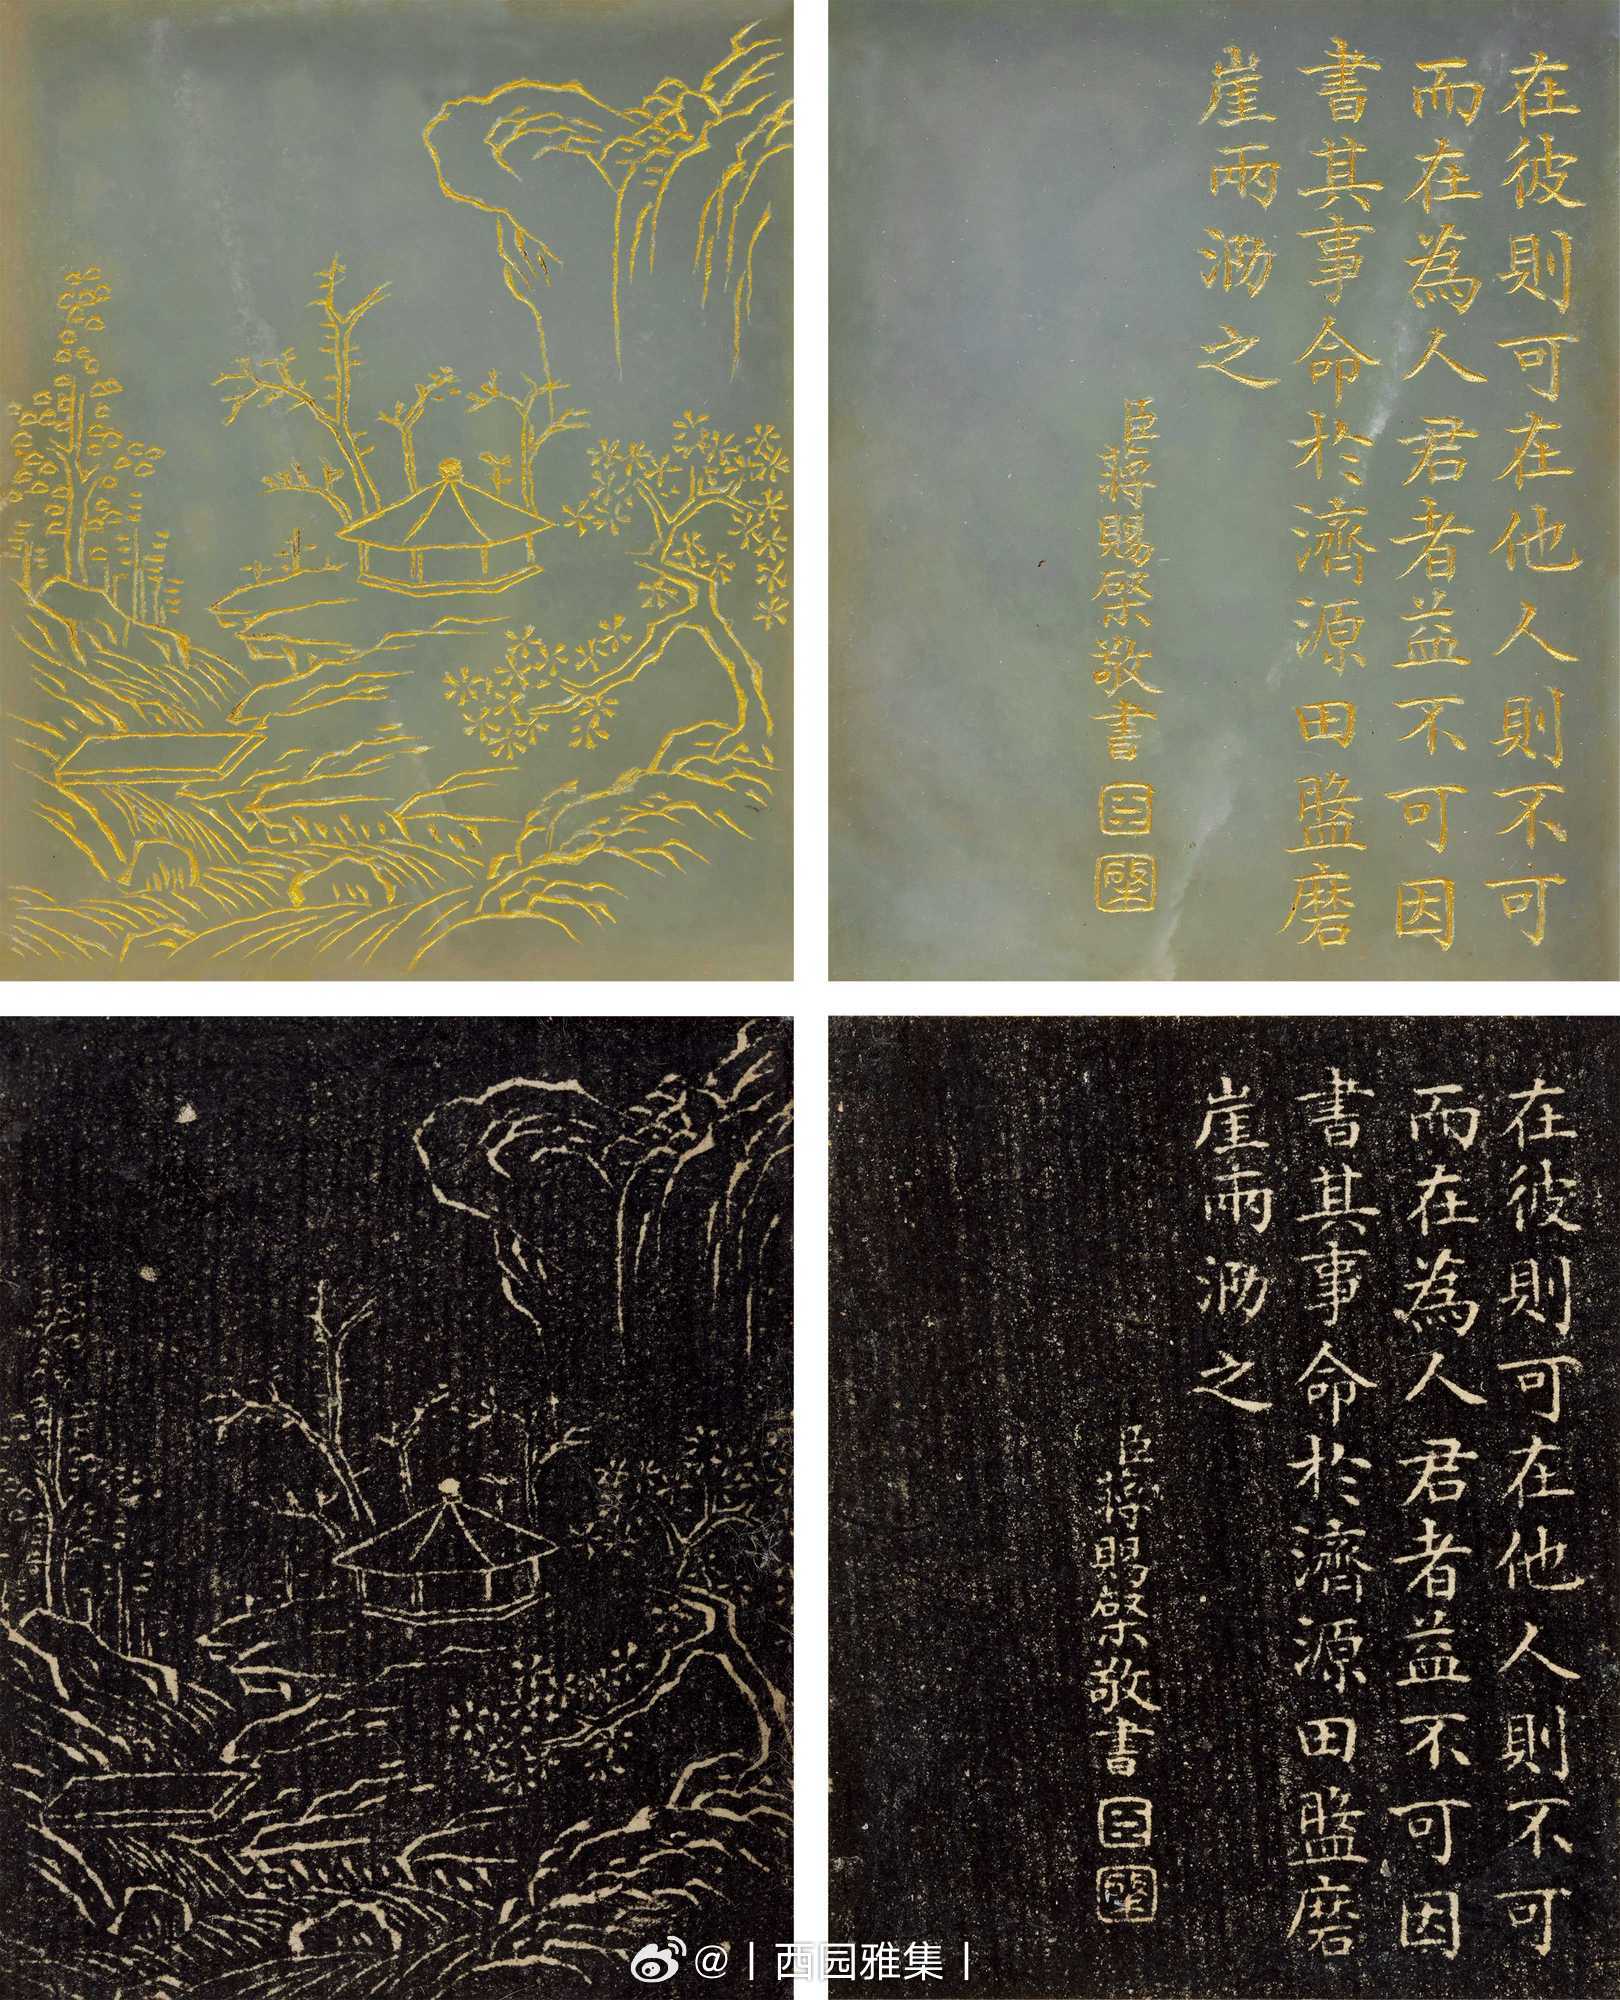 在彼則可在他人則不可
而在為人君者益不可因
書其事命於濟源田盤磨
崖兩泐之
臣蔣賜棨敬書
在彼則可在他人則不可
而在為人君者益不可因
書其事命於濟源田盤磨
崖兩泐之
臣蔣賜棨敬書
@丨西园雅集丨